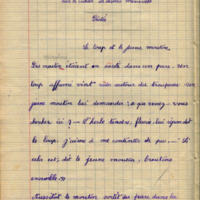 Dictée
Le loup et le jeune mouton.
Des moutons étaient en sûreté dans un parc. Un
loup affamé vint roder autour du troupeau. Un
jeune mouton lui demanda: « que venez-vous
chercher ici ? — L'herbe tendre, fleurie, lui répondit
le loup, j'aime à me contenter de peu. — Si
cela est, dit le jeune mouton, broutons
ensemble. »
Aussitôt le mouton sortit du parc